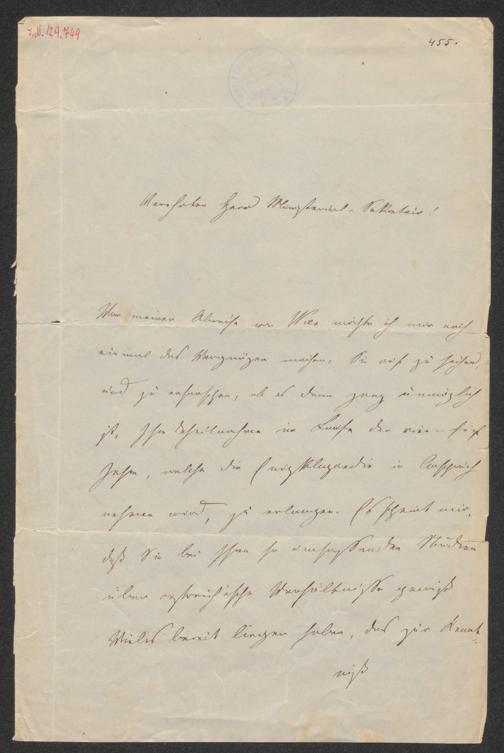 I.N. 129.749
455.
Verehrter Herr Ministerial-Sekretair!
Vor meiner Abreise von Wien möchte ich mir noch
einmal das Vergnügen machen, Sie auf zu suchen,
und zu erforschen, ob es denn ganz unmöglich
ist, Ihre Theilnahme im Laufe der vier – fünf
Jahre, welche die Encyklopaedie in Anspruch
nehmen wird, zu erlangen. Es scheint mir,
daß Sie bei Ihren so umfassenden Studien
über österreichische Verhältnisse gewiß
Vieles bereit liegen haben, das zur Kennt-
niß